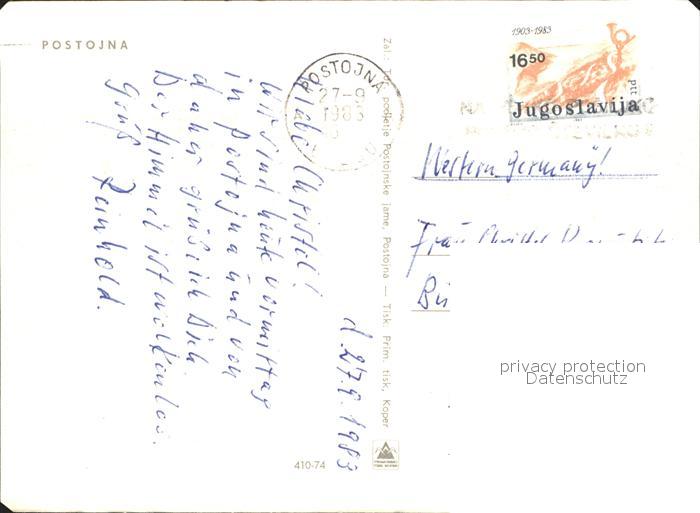 POSTOJNA
d. 27.9.1983
Liebe Christel!
Wir sind heute vormittag
in Postojna und von
daher grüße ich Dich.
Der Himmel ist wolkenlos.
Gruß Reinhold.
POSTOJNA
27-9
1983
1903-1983
16 50
ptt
Jugoslavija
Western Germany!
Frau
privacy protection
Datenschutz
Postojnske jame, Postojna — Tisk: Prim. tisk, Koper
410-74